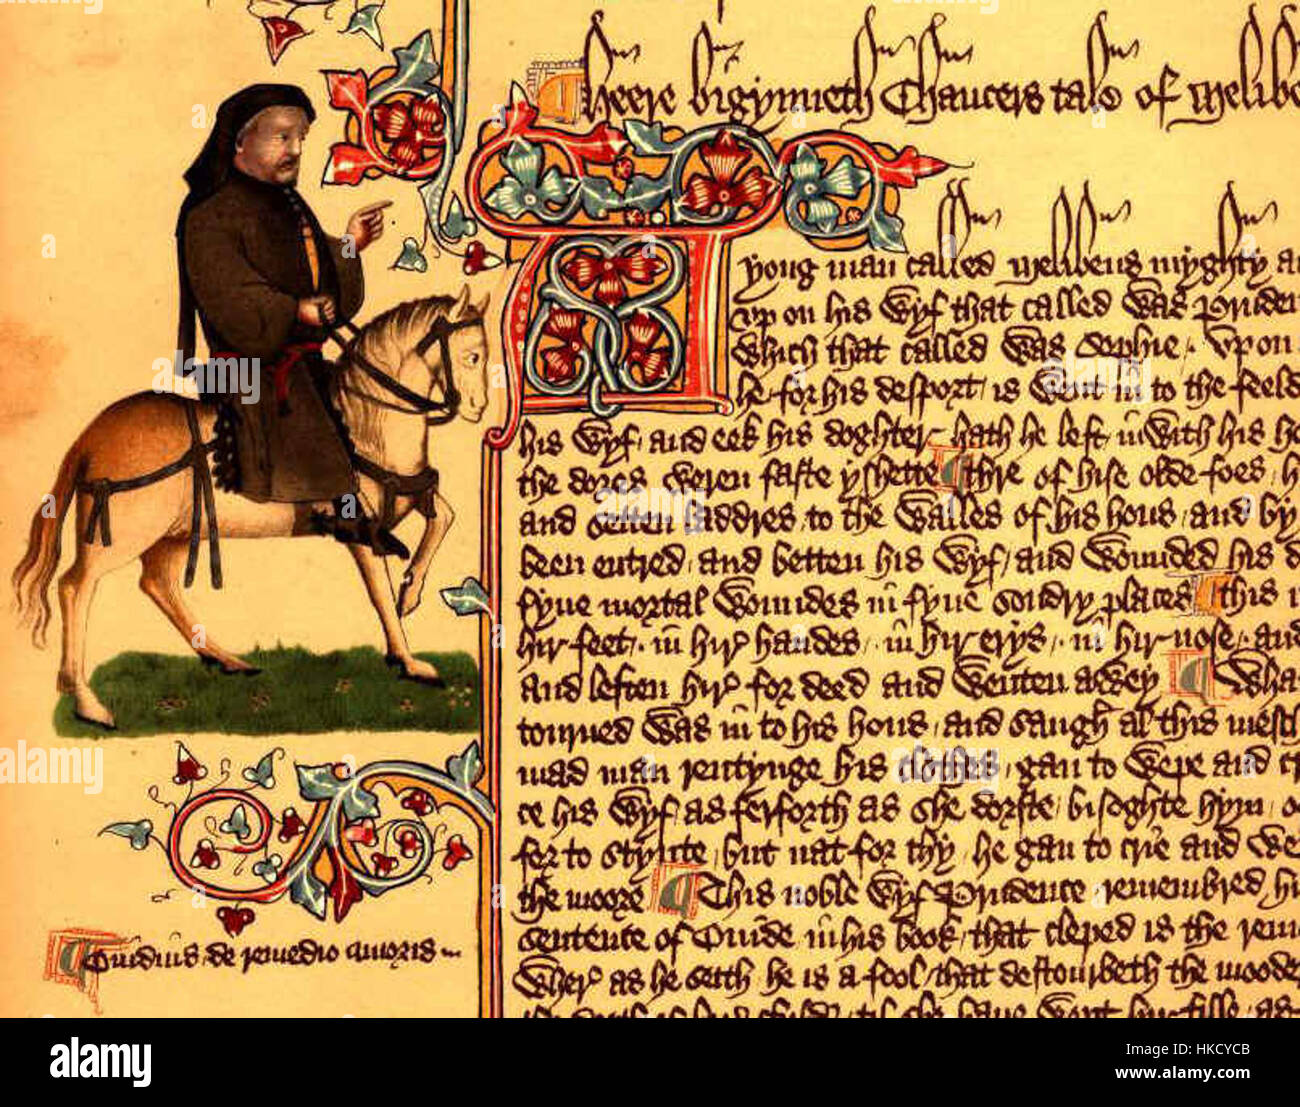 Heere bigynneth Chaucers tale of Melibe
A yong man called Melibeus myghty a
up on his wyf that called was Pruden
which that called was Sophie / Upon
he for his desport / is went in to the feeld
his wyf / and eek his doghter / hath he left inwith his ho
the dores weren faste yshette ¶ Thre of hise olde foes / h
and setten laddres / to the walles of his hous / and by
been entred / and betten his wyf / and wounded his d
fyue mortal woundes in fyue sondry places ¶ this
hir feet / in hire handes / in hir erys / in hir nose / and
and leften hire for deed and wenten awey ¶ Wha
tourned was in to his hous / and saugh al this mesch
mad man rentynge his clothes / gan to wepe and cr
ce his wyf / as ferforth as she dorste / bisoghte hym
for to stynte / but nat for thy / he gan to crie and we
the moore ¶ This noble wyf Prudence remembred hi
sentence of Ouide / in his book / that cleped is the rem
where as he seith / he is a fool / that destourbeth the mooder
¶ Ouidius de remedio amoris
alamy
Image ID: HKCYCB
www.alamy.com